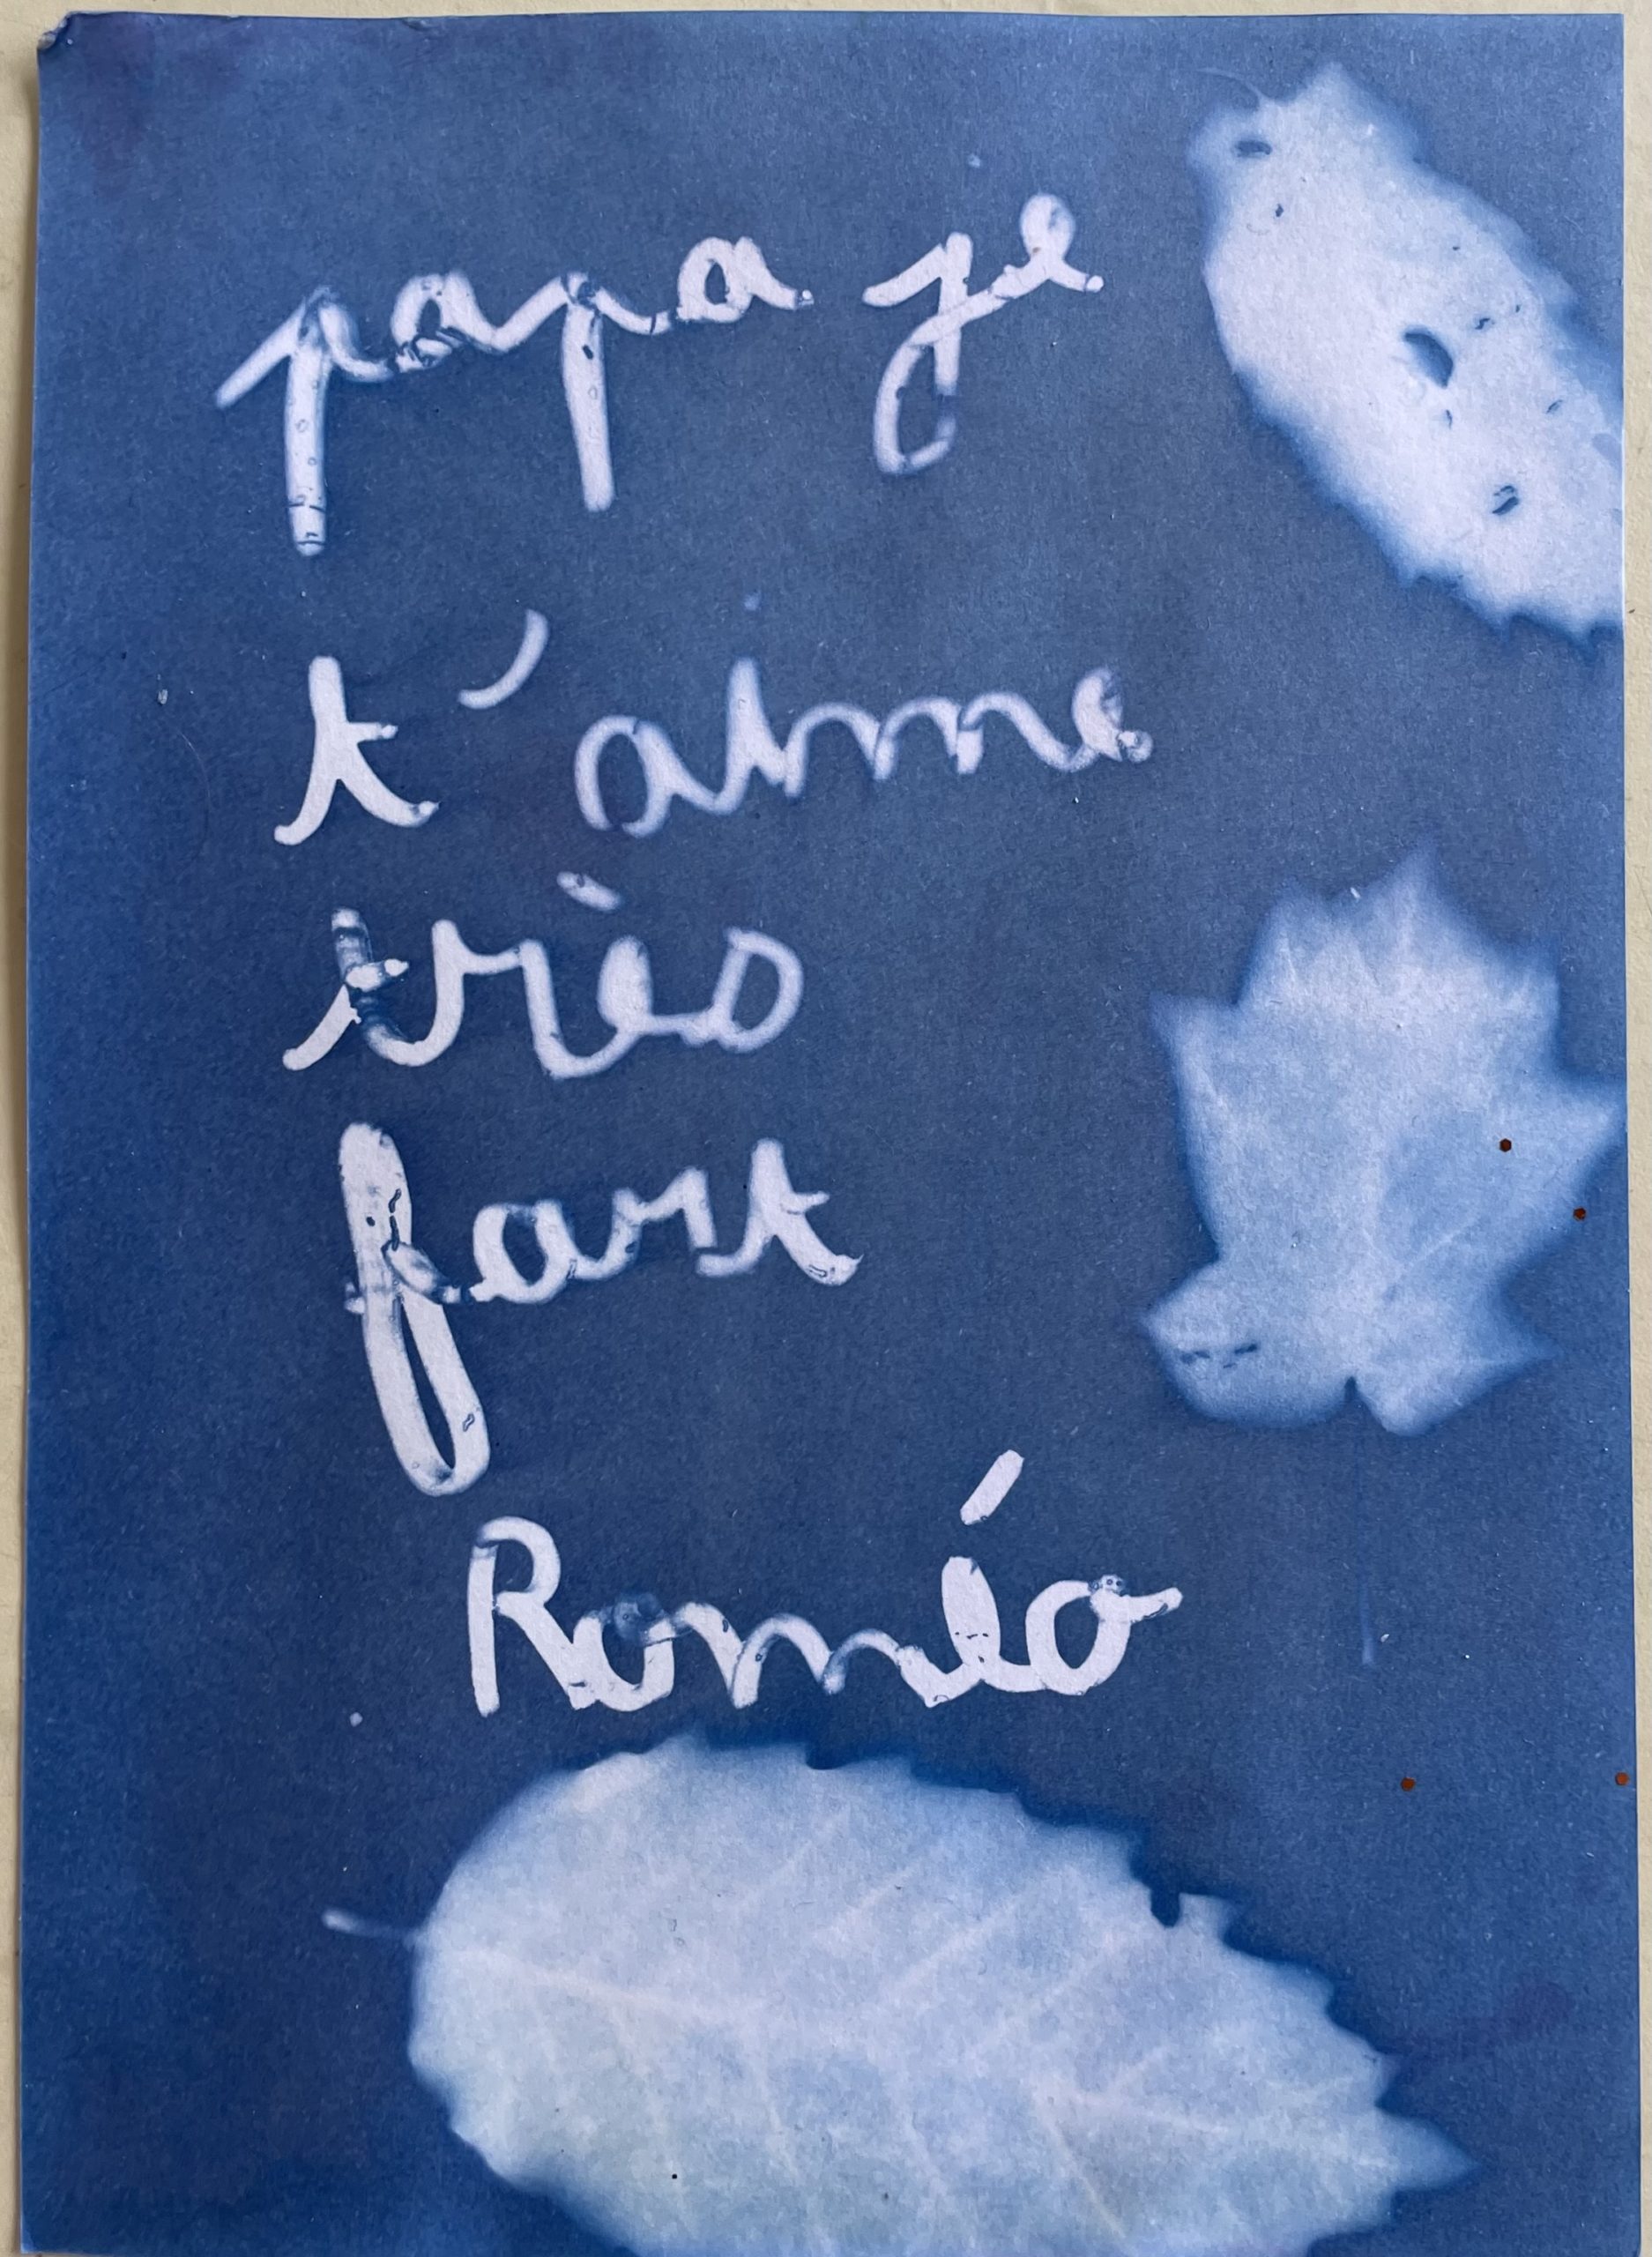 papa je
t'aime
très
fort
Roméo